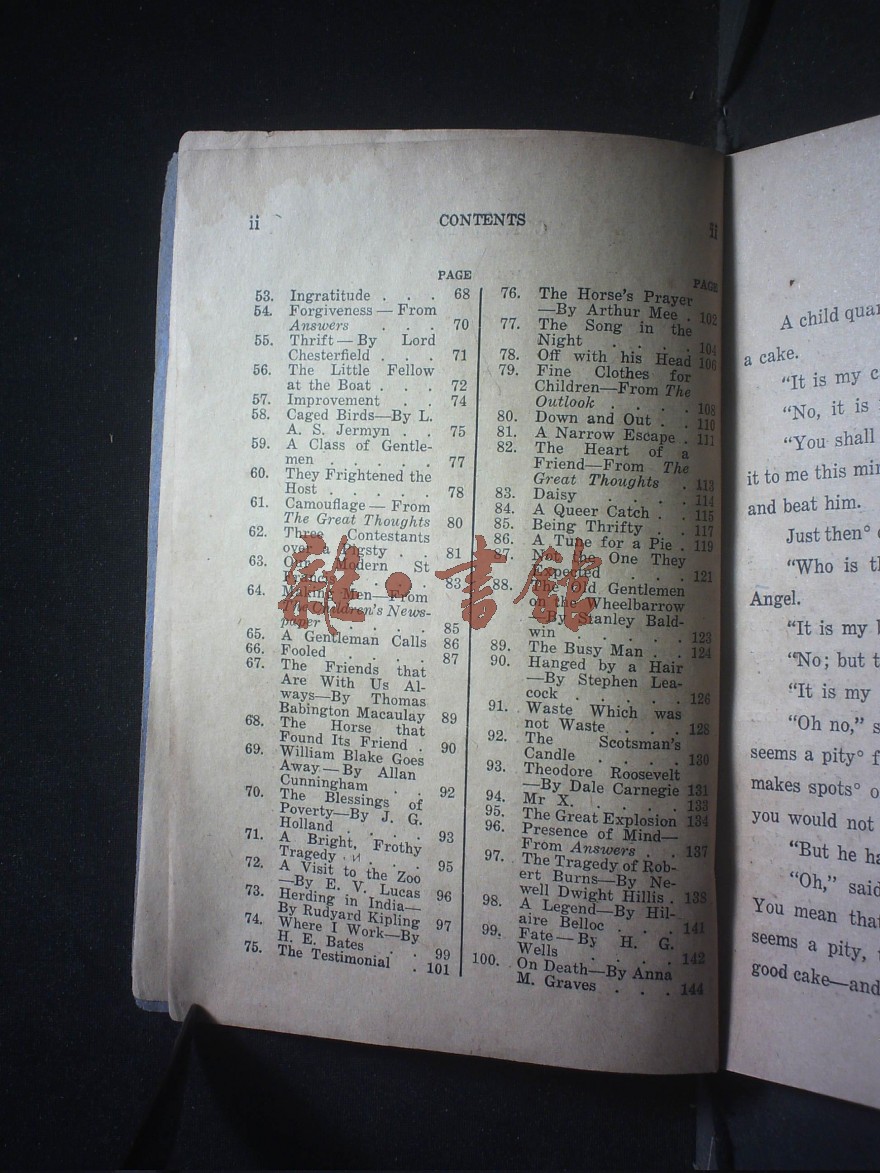 ii
CONTENTS
ii
PAGE
53. Ingratitude . . . 68
54. Forgiveness — From
Answers . . . 70
55. Thrift — By Lord
Chesterfield . . . 71
56. The Little Fellow
at the Boat . . . 72
57. Improvement . . 74
58. Caged Birds—By L.
A. S. Jermyn . . 75
59. A Class of Gentle-
men . . . . . 77
60. They Frightened the
Host . . . . . 78
61. Camouflage — From
The Great Thoughts 80
62. Three Contestants
over a Pigsty . . 81
63. Our Modern St
Francis . . . . 83
64. Making Men—From
The Children's News-
paper . . . . . 85
65. A Gentleman Calls 86
66. Fooled . . . . 87
67. The Friends that
Are With Us Al-
ways—By Thomas
Babington Macaulay 89
68. The Horse that
Found Its Friend . 90
69. William Blake Goes
Away — By Allan
Cunningham . . 92
70. The Blessings of
Poverty—By J. G.
Holland . . . . 93
71. A Bright, Frothy
Tragedy . . . . 95
72. A Visit to the Zoo
—By E. V. Lucas 96
73. Herding in India—
By Rudyard Kipling 97
74. Where I Work—By
H. E. Bates . . 99
75. The Testimonial . 101
PAGE
76. The Horse's Prayer
—By Arthur Mee . 102
77. The Song in the
Night . . . . 104
78. Off with his Head 106
79. Fine Clothes for
Children—From The
Outlook . . . . 108
80. Down and Out . . 110
81. A Narrow Escape . 111
82. The Heart of a
Friend—From The
Great Thoughts . 113
83. Daisy . . . . 114
84. A Queer Catch . . 115
85. Being Thrifty . . 117
86. A Tune for a Pie . 119
87. Not the One They
Expected . . . 121
88. The Old Gentlemen
on the Wheelbarrow
—By Stanley Bald-
win . . . . . 123
89. The Busy Man . . 124
90. Hanged by a Hair
—By Stephen Lea-
cock . . . . . 126
91. Waste Which was
not Waste . . . 128
92. The Scotsman's
Candle . . . . 130
93. Theodore Roosevelt
—By Dale Carnegie 131
94. Mr X. . . . . 133
95. The Great Explosion 134
96. Presence of Mind—
From Answers . . 137
97. The Tragedy of Rob-
ert Burns—By Ne-
well Dwight Hillis . 138
98. A Legend—By Hil-
aire Belloc . . . 141
99. Fate — By H. G.
Wells . . . . 142
100. On Death—By Anna
M. Graves . . . 144
書館
A child
a cake.
"It is my
"No, it is
"You shall
it to me this
and beat him.
Just then°
"Who is
Angel.
"It is my
"No; but
"It is my
"Oh no,"
seems a pity°
makes spots°
you would not
"But he
"Oh," said
You mean that
seems a pity,
good cake—and